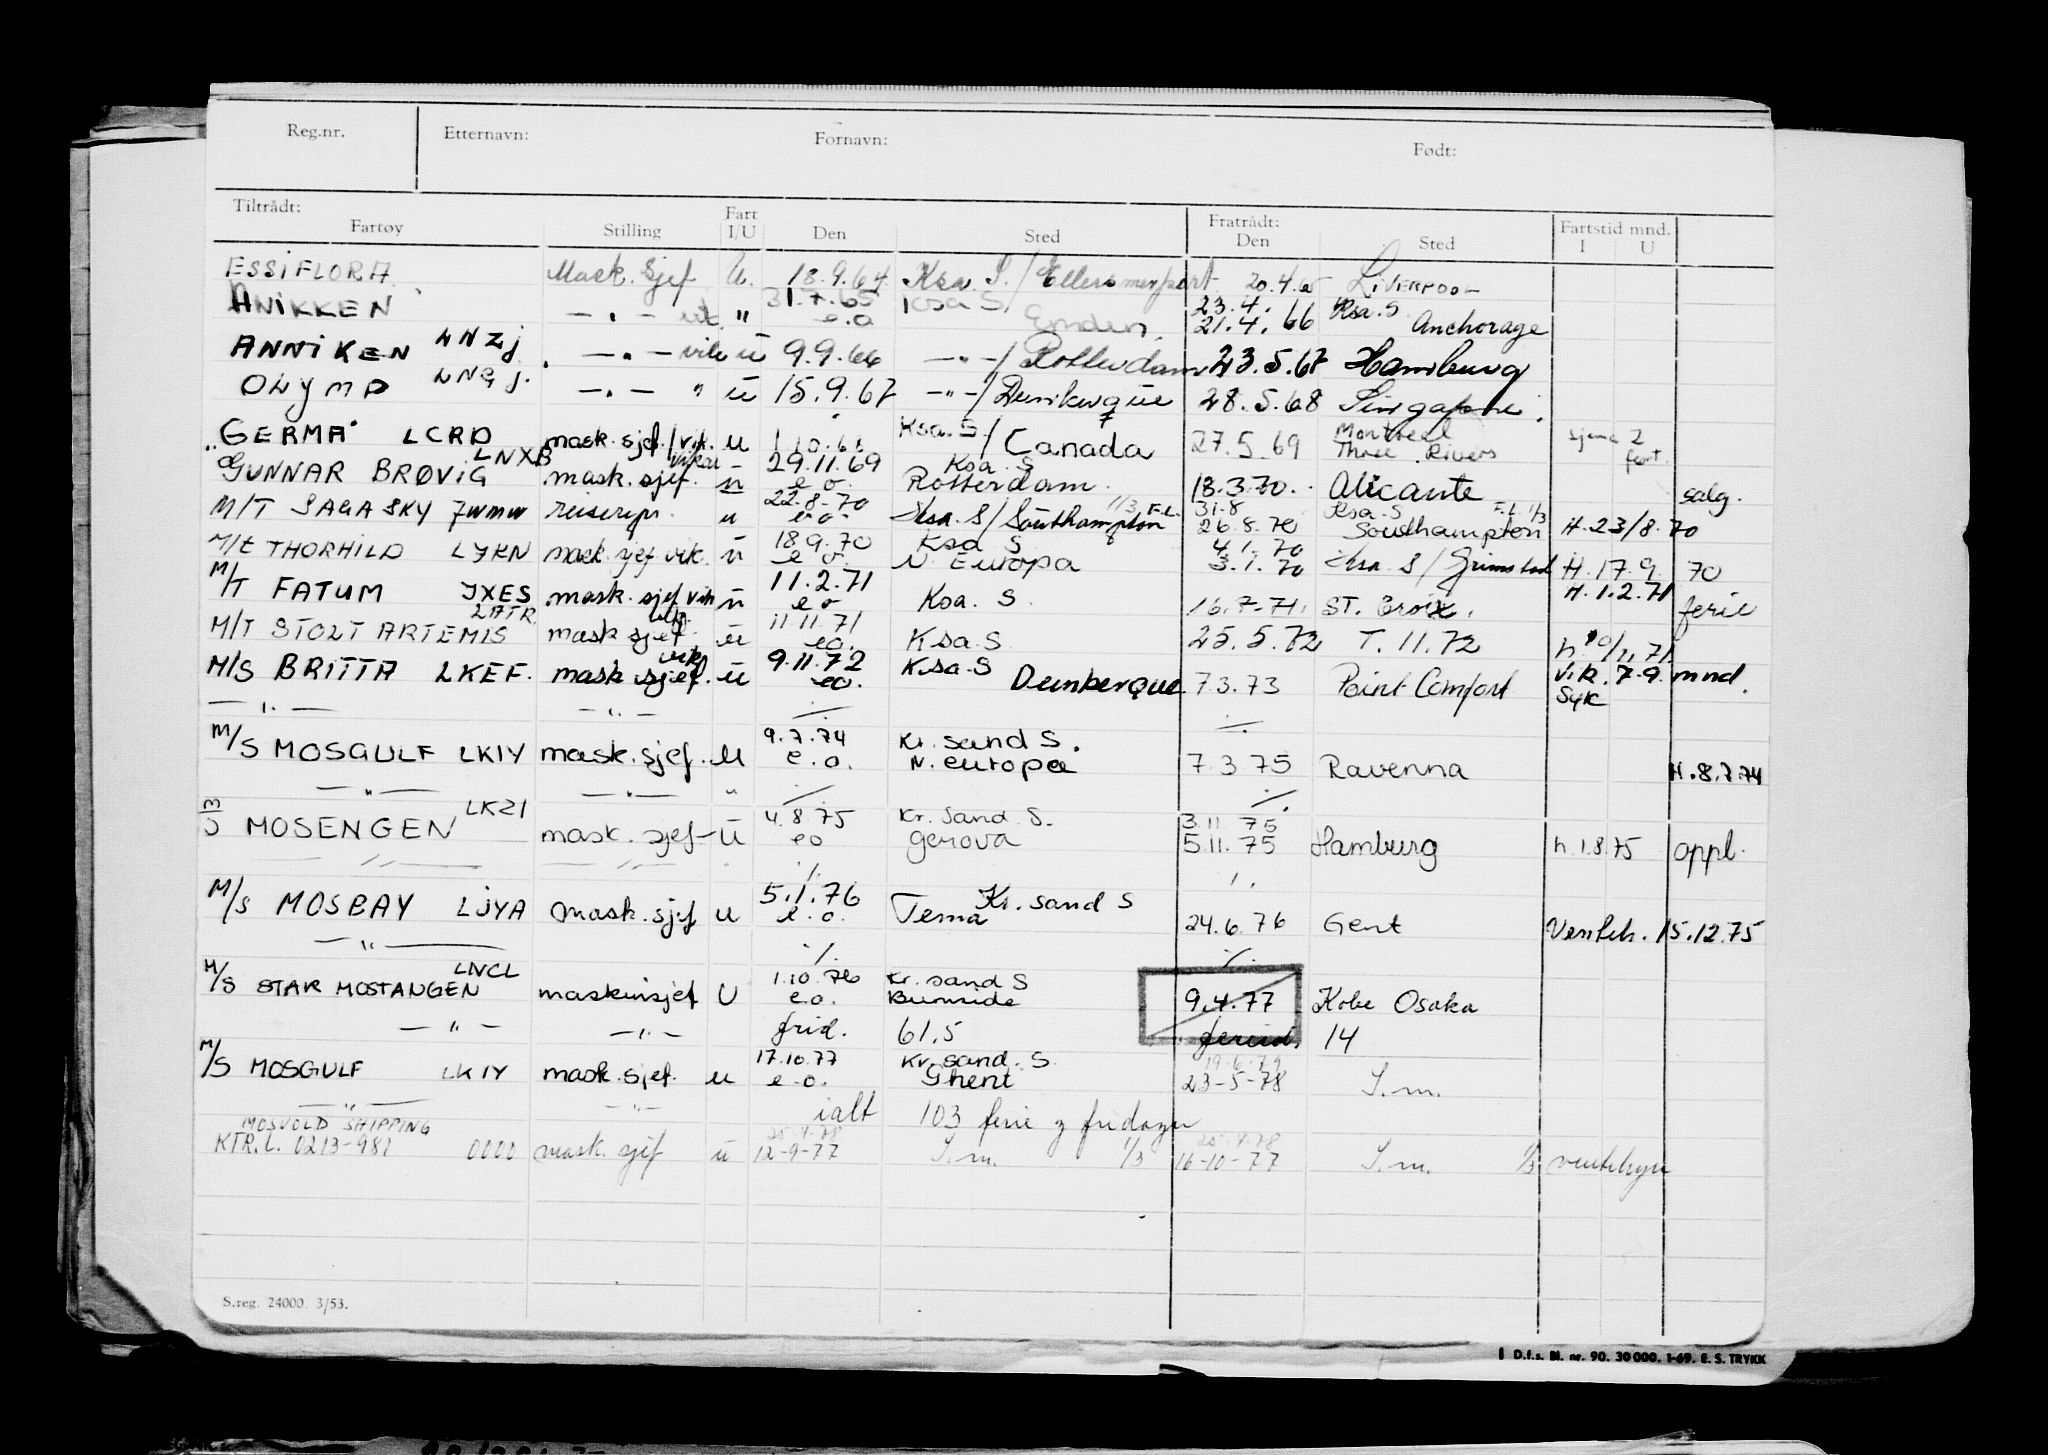 Reg.nr. Etternavn: Fornavn: Født:
Tiltrådt: Fratrådt:
Fartøy Stilling Fart I/U Den Sted Den Sted Fartstid mnd. I U
ESSIFLORA Mask. sjef U. 18.9.64 Ksa. S./Ellesmereport 20.4.65 LIVERPOOL
ANIKKEN —„— vik. " 31.7.65 e.o Ksa S. Emden. 23.4. 21.4.66 Ksa. S Anchorage
ANNIKEN LNZJ —„— vik u 9.9.66 —"—/Rotterdam 23.5.67 Hamburg
OLYMP LNGJ. —„— " u 15.9.67 —"—/Dunkerque 28.5.68 Singapore.
"GERMA" LCRD mask. sjef/vik. u 1.10.68 Ksa. S/Canada 27.5.69 Montreal Three Rivers sjema 2 fort.
GUNNAR BRØVIG LNXB mask. sjef. vikar u 29.11.69 e o. Ksa. S Rotterdam. 18.3.70. Alicante salg.
M/T SAGA SKY JWMW reiserepr. u 22.8.70 e.o. Ksa. S/Southampton 1/3 F.L. 31.8 26.8.70 Ksa. S Southampton F.L. 1/3 H.23/8.70
M/T THORHILD LJKN mask. sjef vik. u 18 9.70 e o. Ksa S N. Europa 4.1.70 3.1.70 Ksa S/Grimstad H.17.9.70
M/T FATUM JXES mask. sjef vik u 11.2.71 e o Ksa. S. 16.7.71. ST. Croix. H.1.2.71 ferie
M/T STOLT ARTEMIS LATR mask sjef. vik. u 11.11.71 eo. Ksa S. 25.5.72 T.11.72 h.10/11.71
M/S BRITTA LKEF. mask sjef. vik u 9.11.72 eo. Ksa. S Dunkerque 7.3.73 Point Comfort vik. 7-9. mnd. syk
—„— —„— ./. ./.
M/S MOSGULF LKIY mask. sjef. u 9.7.74 e.o. Kr. sand S. N. europa 7.3 75 Ravenna H.8.7.74
—„— —„— " ./. ./.
M/S MOSENGEN LKZI mask. sjef- u 4.8 75 eo Kr. Sand. S. Genova 3.11 75 5.11.75 Hamburg h.1.8.75 oppl.
—„— —„— ./. ./.
M/S MOSBAY LJYA mask. sjef u 5.1.76 e.o. Tema Kr. sand S 24.6.76 Gent Venteh. 15.12.75
—„— ./. ./.
M/S STAR MOSTANGEN LNCL maskinsjef U 1.10.76 e.o. Kr. sand S Burnside 9.4.77 Kobe Osaka
—„— —„— frid. 61,5 feried. 14
M/S MOSGULF LKIY mask. sjef. u 17.10.77 e.o. Kr. sand. S. Ghent 19.6.79 23-5-78 S.m.
—„— —„— ialt 103 ferie g fridager
MOSVOLD SHIPPING
KTR.L. 0213-981 0000 mask. sjef u 25.4.78 12-9-77 S.m. 1/3 25.4.78 16-10-77 S.m. 1/3 ventehyre
S.reg. 24000. 3/53.
D.f.s. Bl. nr. 90. 30 000. 1-69. E. S. TRYKK